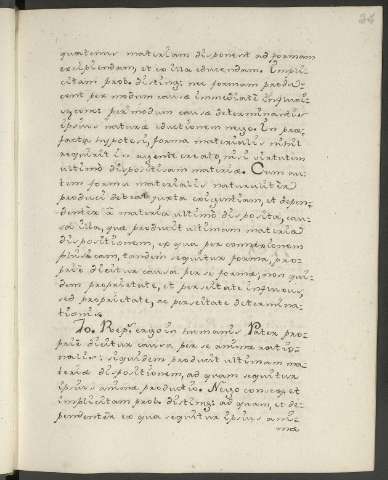 24
quatenus materiam disponent ad formam
excipiendam, et ex illa educendam. Impli-
citam prob. disting: nec formam produ-
cent per modum causæ immediatè influxi-
væ, conc: per modum causæ determinantis
ipsius naturæ eductionem nego. In præ-
facta hypotesi, forma materialis nihil
requirit in agente creato, nisi virtutem
ultimò dispositivam materiæ. Cum au-
tem forma materialis naturaliter
produci debeat juxta exigentiam, et depen-
denter à materia ultimò disposita, cau-
sa illa, quæ producit ultimam materiæ
dispositionem, ex qua per connexionem
physicam, tandem sequitur forma, pro-
priè dicitur causa per se formæ, non qui-
dem proprietate, et perseitate influxus,
sed proprietate, ac perseitate determina-
tionis.
70. Rep. ergo in humanis Pater pro-
priè dicitur causa per se animæ ratio-
nalis: siquidem producit ultimam ma-
teriæ dispositionem, ad quam sequitur
ipsius animæ productio. Nego conseq. et
implicitam prob. disting: ad quam, et de-
pendenter ex qua sequitur ipsius ani-
mæ